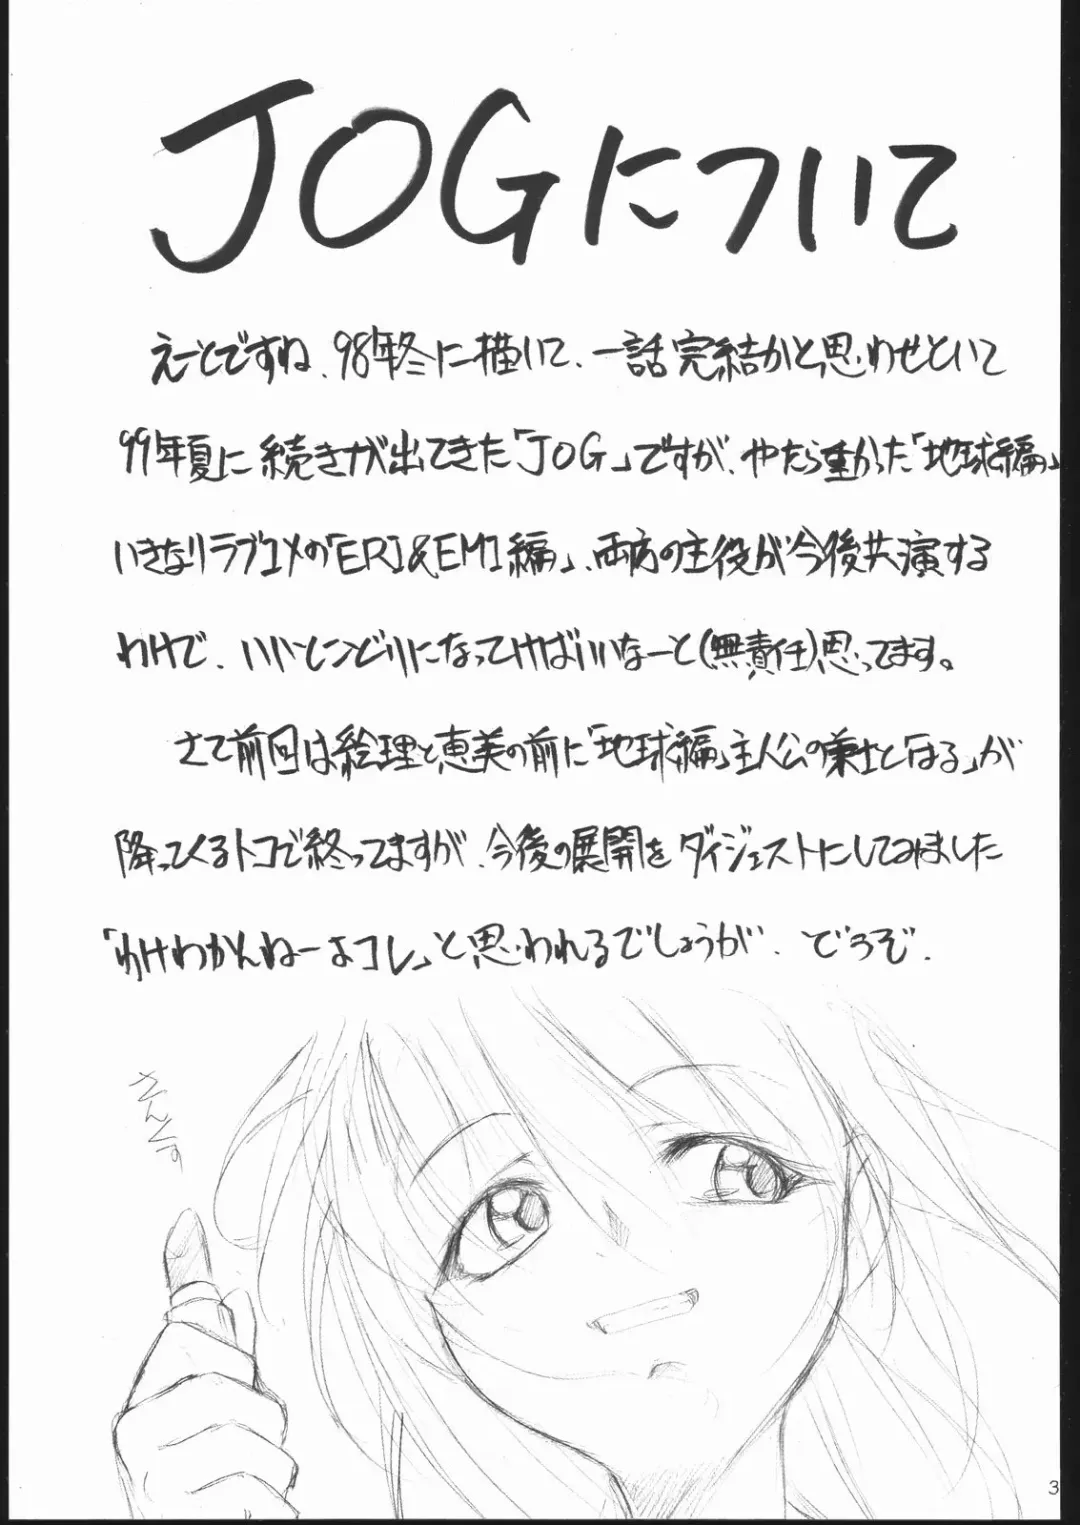 JOGについて
えーとですね、98年冬に描いて、一話完結かと思わせといて
99年夏に続きが出てきた「JOG」ですが、やたら重かった「地球編」
いきなりラブコメの「ERI&EMI編」、両方の主役が今後共演する
わけで、いいトコどりになってけばいいなーと(無責任)思ってます。
さて前回は絵理と恵美の前に「地球編」主人公の兼士と「はる」が
降ってくるトコで終ってますが、今後の展開をダイジェストにしてみました
「わけわかんねーよコレ」と思われるでしょうが、どうぞ.
さんくす
3